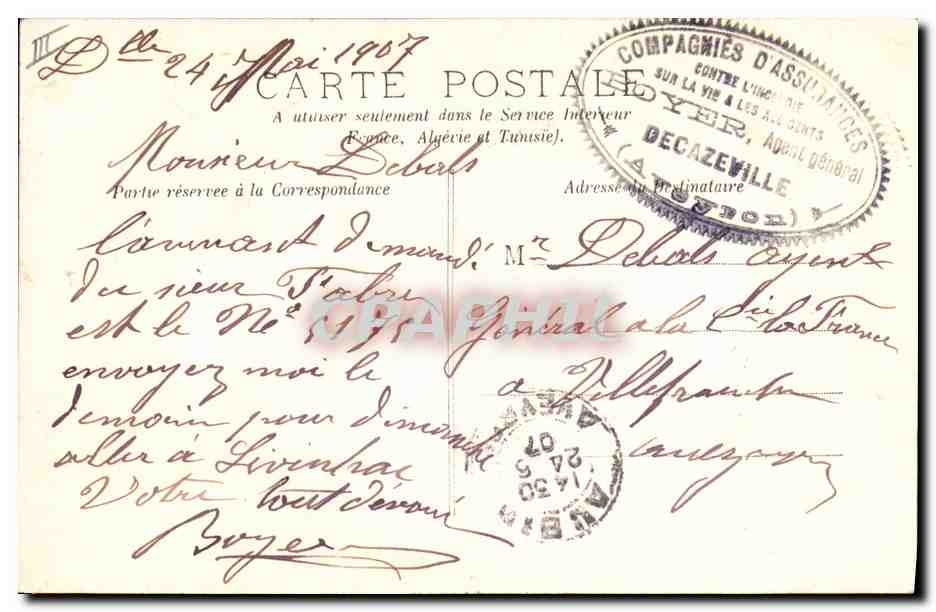 III
Dlle 24 Mai 1907
CARTE POSTALE
A utiliser seulement dans le Service Intérieur
France, Algérie et Tunisie).
COMPAGNIES D'ASSURANCES
CONTRE L'INCENDIE
SUR LA VIE & LES ACCIDENTS
BOYER, Agent général
DECAZEVILLE
(Aveyron)
Monsieur Debals
Partie réservée à la Correspondance
l'avenant demandé
du sieur Fabre
est le No
envoyez moi le
demain pour dimanche
aller à Livinhac
Votre tout dévoué
Boyer
Adresse du Destinataire
Mr Debals agent
Général a la Cie la France
a Villefranche
aveyron
CPAPHIL
AUBIN
14 30
24 5
07
AVEYR